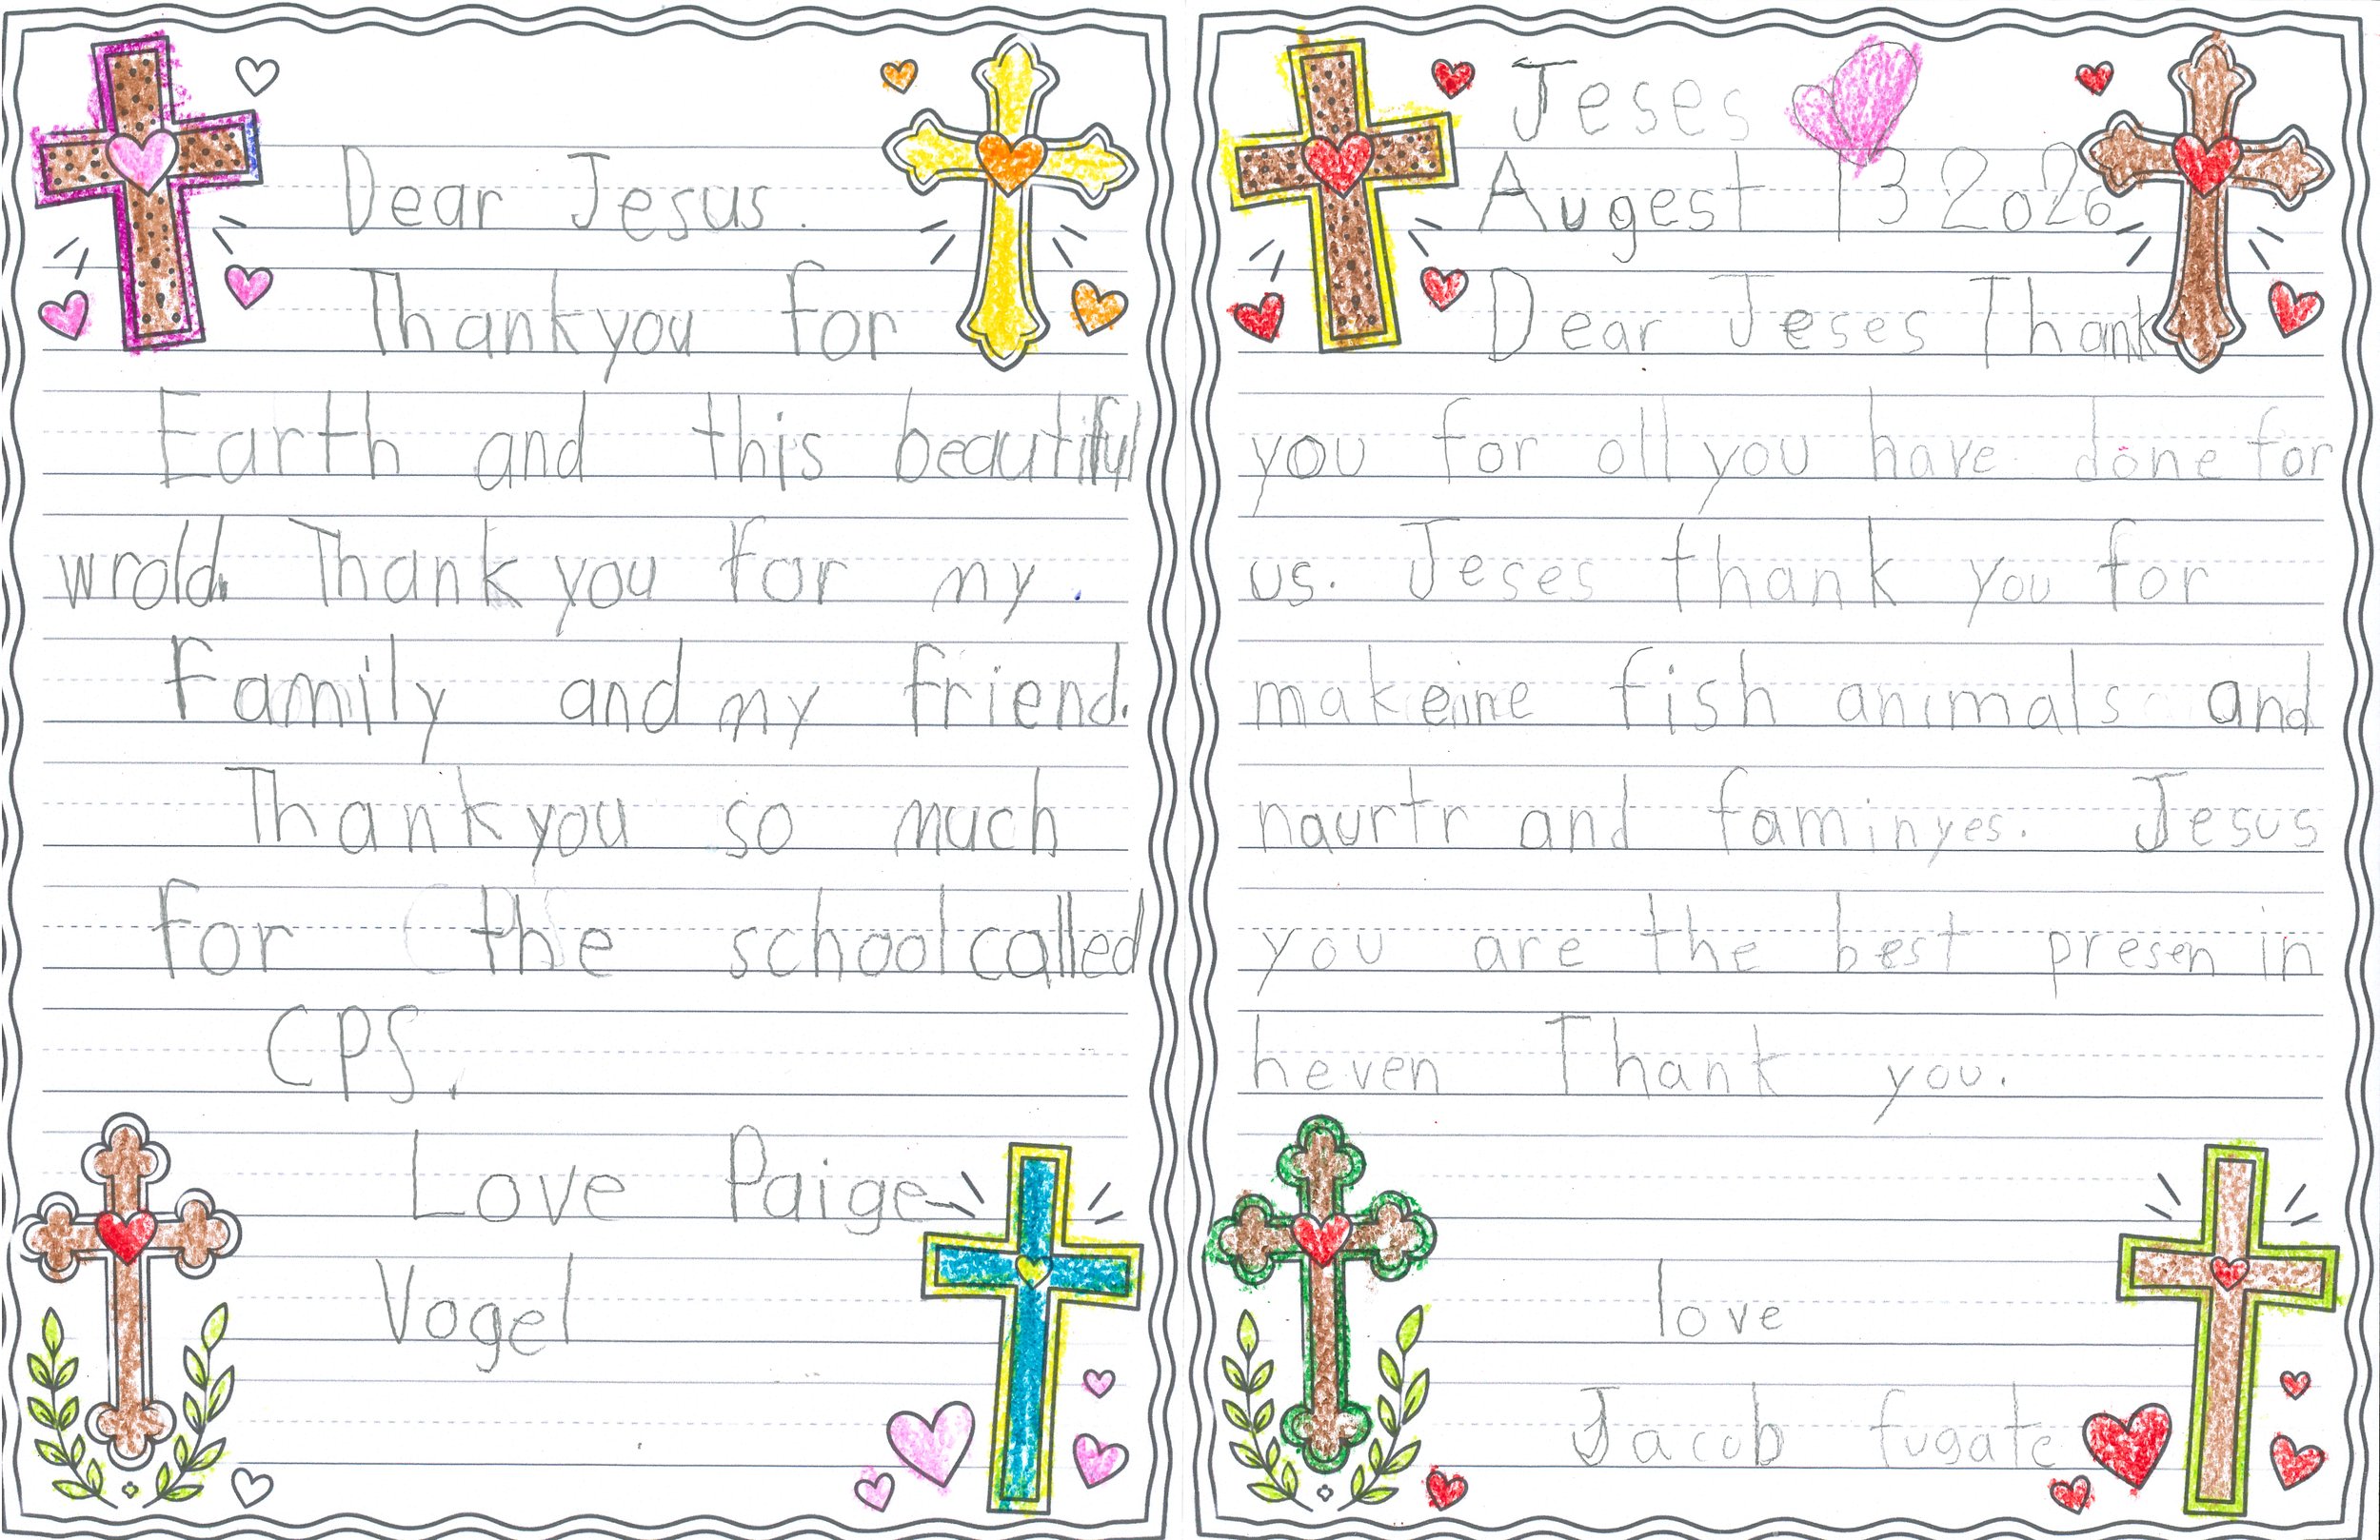 Dear Jesus.
Thank you for
Earth and this beautiful
wrold. Thank you for my
Family and my friend.
Thank you so much
for the school called
CPS.
Love Paige
Vogel
Jeses
Augest 13 2026
Dear Jeses Thank
you for all you have done for
us. Jeses thank you for
makeine fish animals and
naurtr and faminyes. Jesus
you are the best presen in
heven Thank you.
love
Jacob fugate